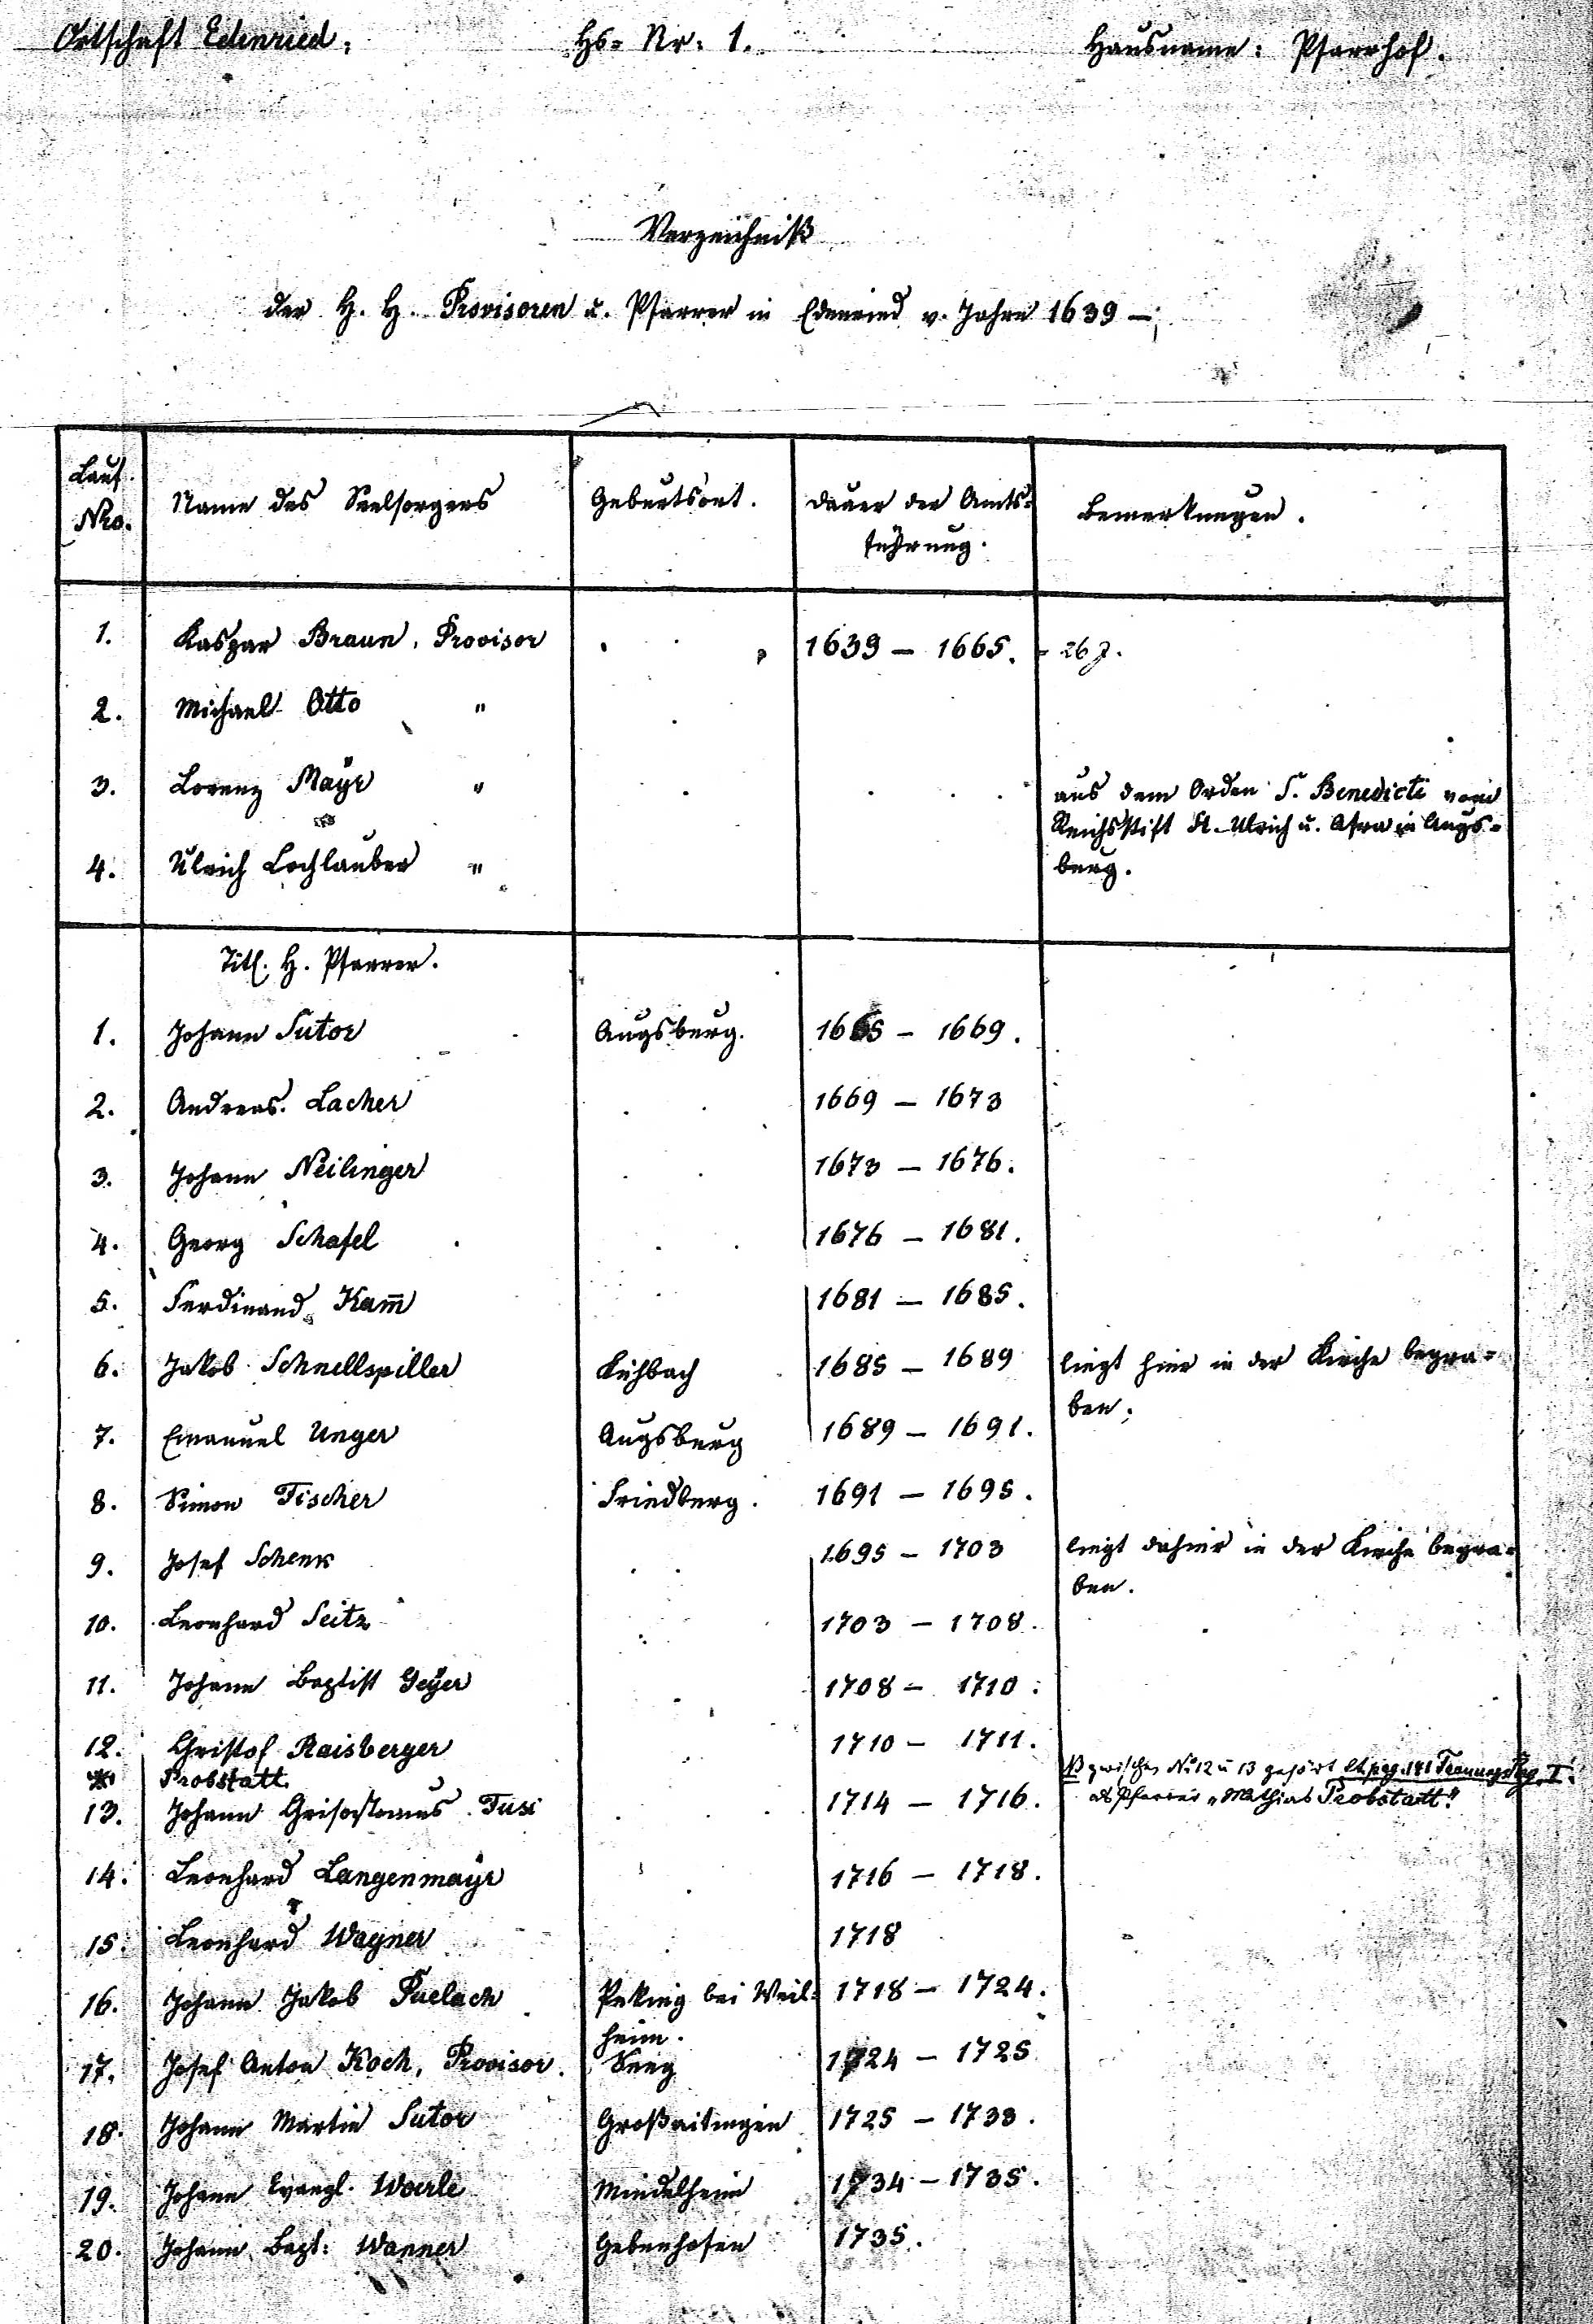 Ortschaft Edenried. Hs= Nr: 1. Hausname: Pfarrhof.
Verzeichniß
der H. H. Provisoren u. Pfarrer in Edenried v. Jahre 1639 —
Lauf. Nro. Name des Seelsorgers Geburtsort. Dauer der Amts=
führung. Bemerkungen.
1. Kaspar Braun, Provisor 1639 — 1665. = 26 J.
2. Michael Otto "
3. Lorenz Maÿr " aus dem Orden S. Benedicti vom
Reichsstift St. Ulrich u. Afra in Augs=
4. Ulrich Lochlauber " burg.
Titl. H. Pfarrer.
1. Johann Sutor Augsburg. 1665 — 1669.
2. Andreas Lacher 1669 — 1673
3. Johann Neilinger 1673 — 1676.
4. Georg Schafel 1676 — 1681.
5. Ferdinand Kam̄ 1681 — 1685.
6. Jakob Schnellspiller Kühbach 1685 — 1689 liegt hier in der Kirche begra=
ben.
7. Emanuel Unger Augsburg 1689 — 1691.
8. Simon Fischer Friedberg. 1691 — 1695.
9. Josef Schenk 1695 — 1703 liegt dahier in der Kirche begra=
ben.
10. Leonhard Seitz 1703 — 1708.
11. Johann Baptist Geÿer 1708 — 1710.
12. Christof Raisberger 1710 — 1711.
* Probstatt. zwischen No 12 u 13 gehört lt. pag. 141 I.
13. Johann Chrisostomus Fusi 1714 — 1716. als Pfarrer „Mathias Probstatt."
14. Leonhard Langenmaÿr 1716 — 1718.
15. Leonhard Wagner 1718
16. Johann Jakob Puelach bei Weil= 1718 — 1724.
heim.
17. Josef Anton Koch, Provisor. Seeg 1724 — 1725
18. Johann Martin Sutor Großaitingen 1725 — 1733.
19. Johann Evangl. Woerle Mindelheim 1734 — 1735.
20. Johann Bapt: Wanner Gebenhofen 1735.